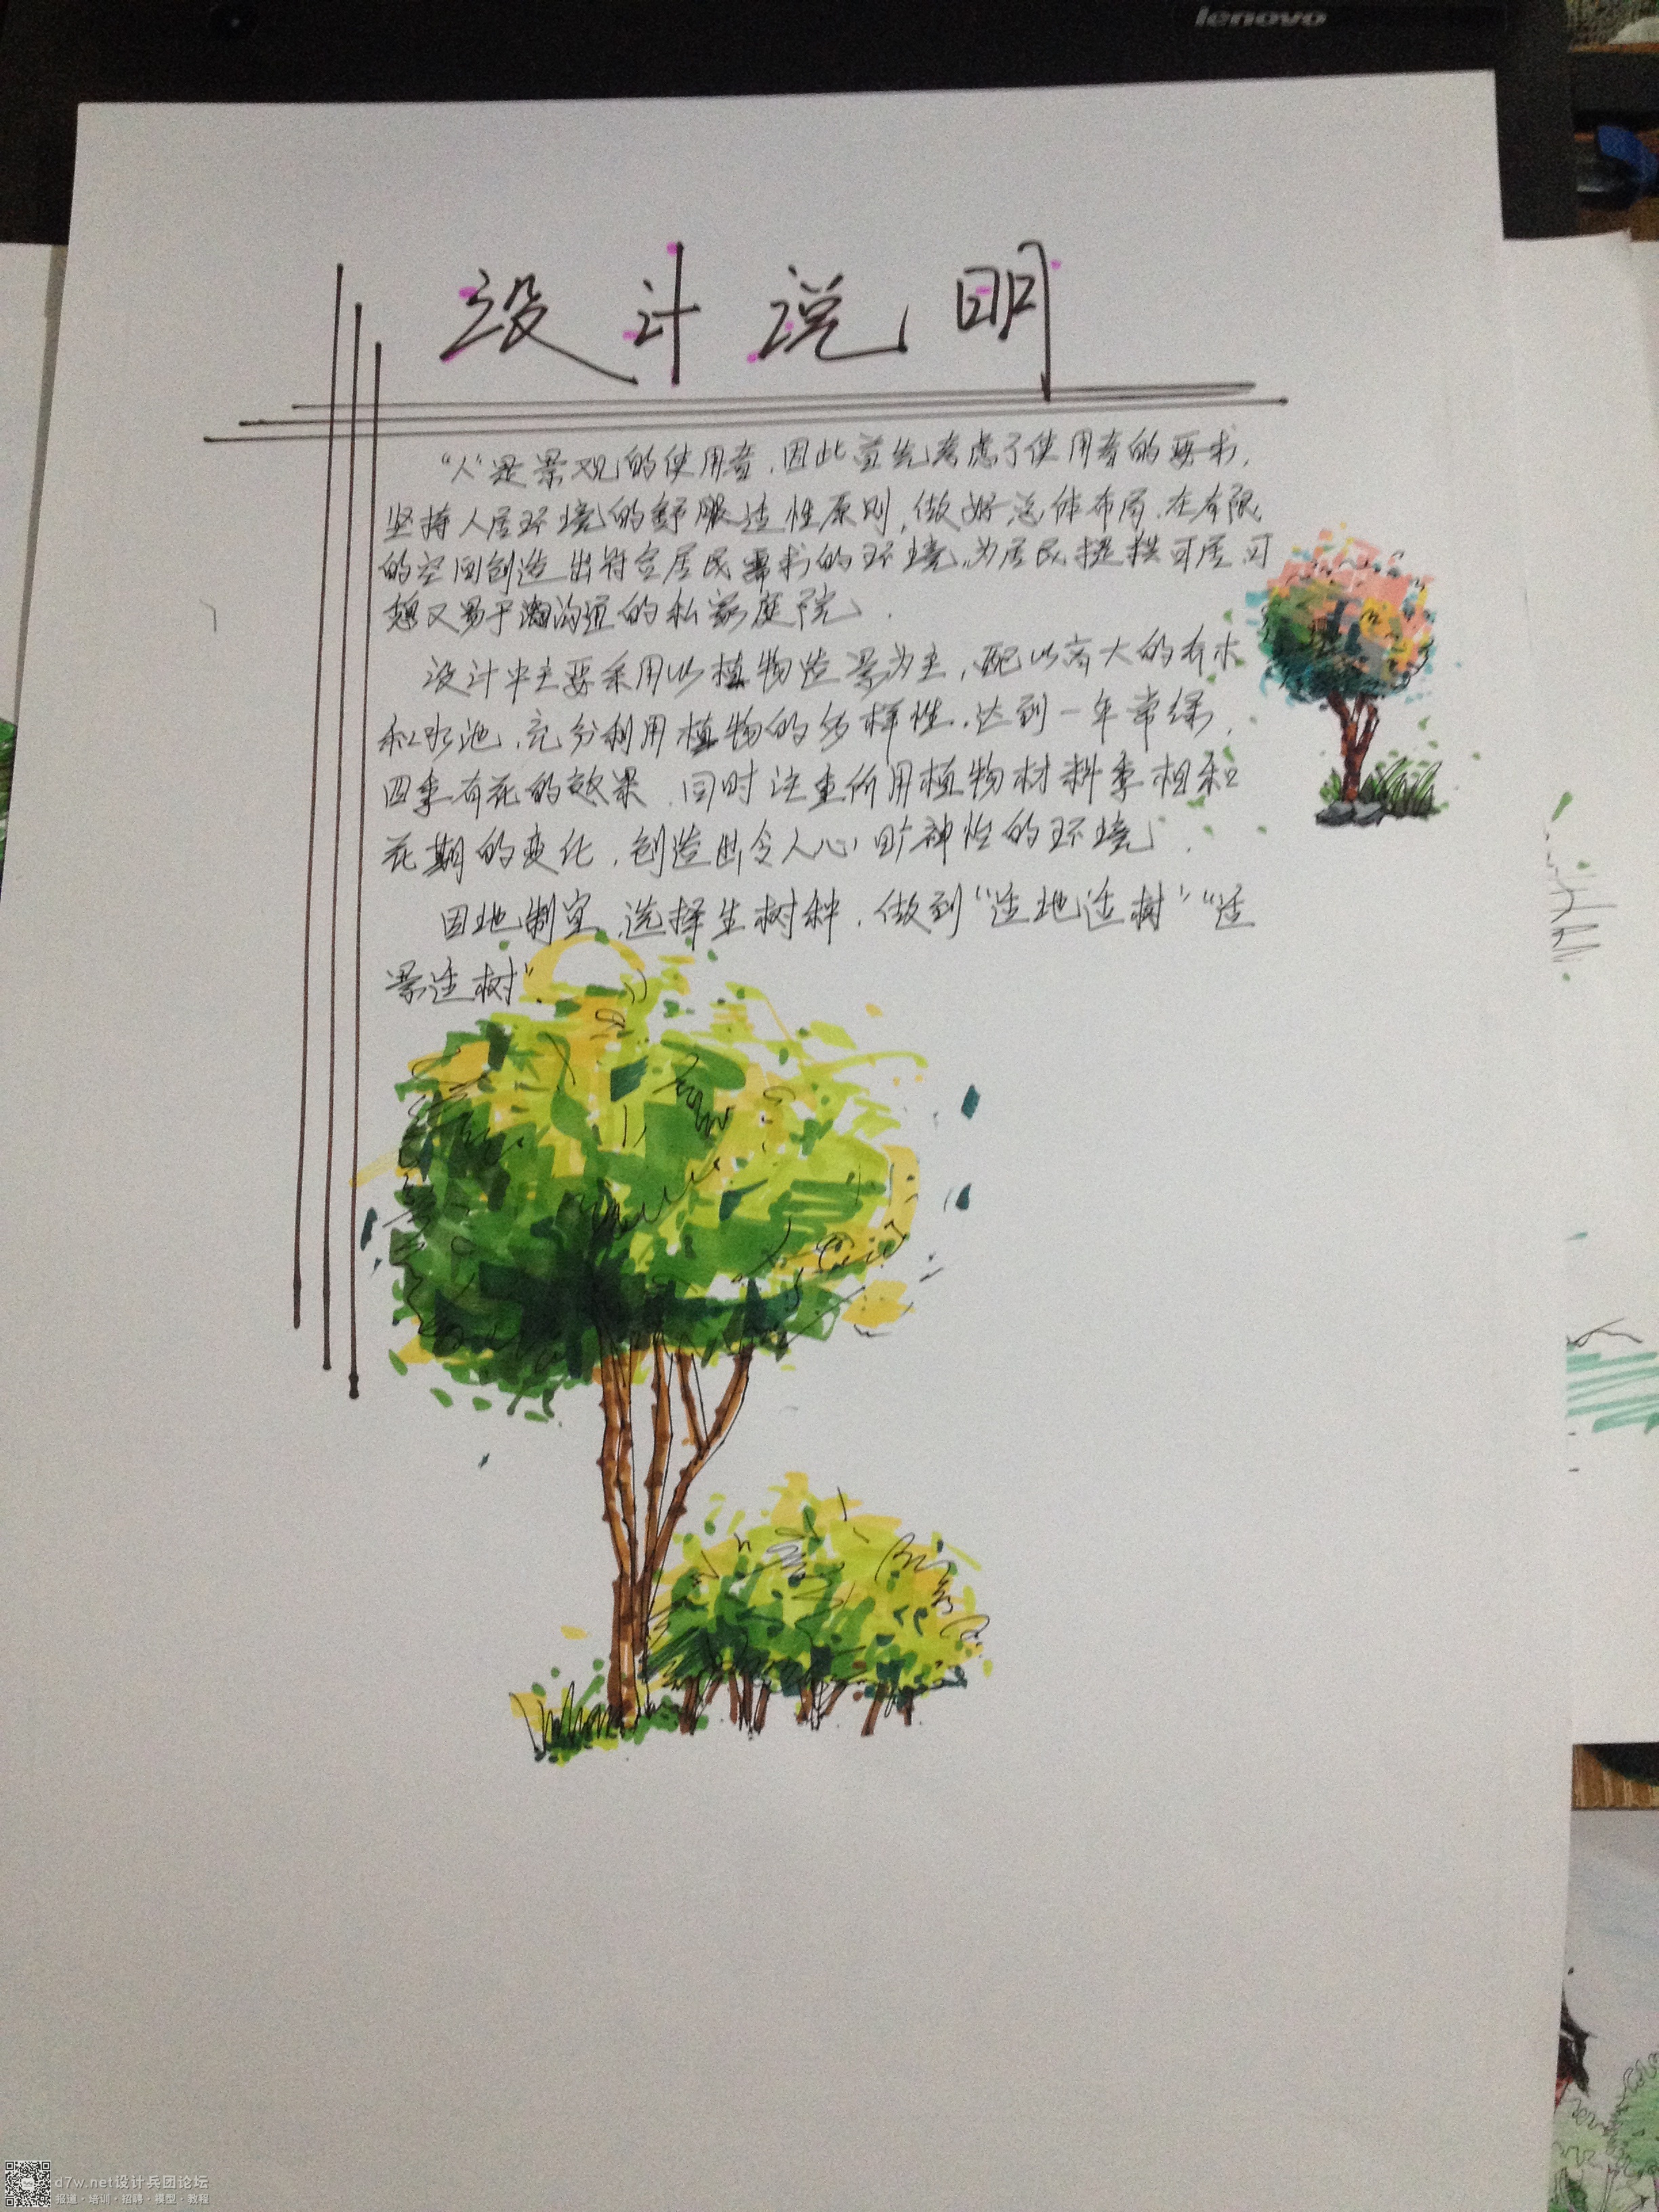 lenovo
设计说明
“人”是景观的使用者，因此首先考虑了使用者的要求，
坚持人居环境的舒服适性原则，做好总体布局，在有限
的空间创造出符合居民需求的环境，为居民提供可居、可
憩又易于沟通的私家庭院。
设计中主要采用以植物造景为主，配以高大的乔木
和水池，充分利用植物的多样性，达到一年常绿，
四季有花的效果，同时注重所用植物材料季相和
花期的变化，创造出令人心旷神怡的环境。
因地制宜，选择生树种，做到“适地适树”“适
景适树”。
d7w.net设计兵团论坛
报道·培训·招聘·模型·教程